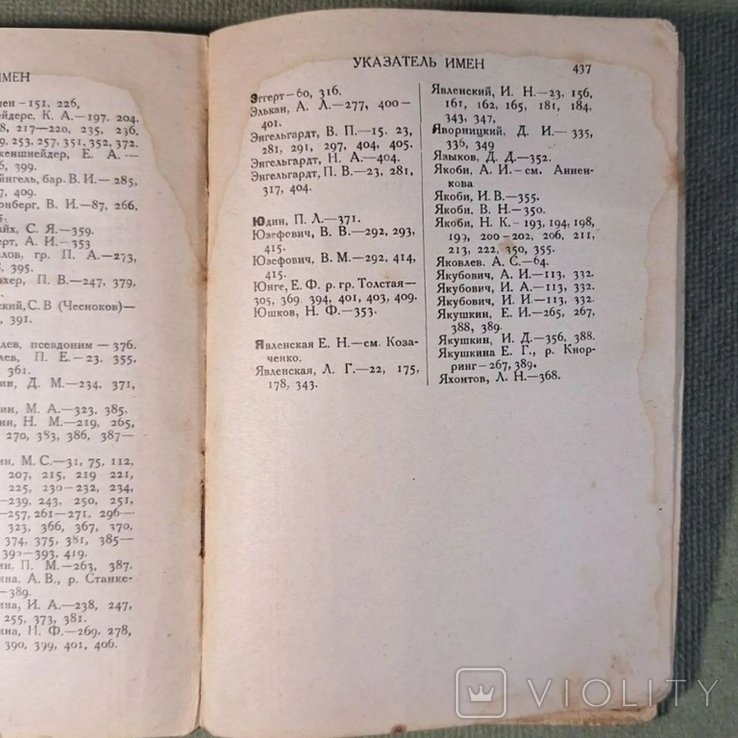 ИМЕН
мен-151, 226,
йдерс, К. А.-197, 204.
8, 217-220, 235, 236,
9, 253, 257, 351, 352, 372
кеншнейдер, Е. А.-
6, 399.
йнгель, бар. В. И-285,
7, 409.
рнберг, В. И-87, 266,
5.
айх, С. Я.-359.
ерт, А. И-353
лов, гр. П. А.-273,
3, 395.
ахер, П. В.-247, 379,
1.
ский, С. В (Чесноков)-
, 391.
лев, псевдоним-376.
лев, П. Е-23, 355,
361.
ин, Д. М.-234, 371,
ин, М. А.-323, 385.
ин, Н. М-219, 265,
270, 383, 386, 387-
ин, М. С.-31, 75, 112,
207, 215, 219 221,
225, 230-232, 234,
-239, 243, 250, 251,
-257, 261-271, 296-
323, 366, 367, 370,
374, 375, 381, 385-
390-393, 419.
ин, П. М-263, 387.
ина. А. В., р. Станке-
-389.
ина, И. А-238, 247,
255, 373, 381.
ина, Н. Ф-269, 278,
390, 399, 401, 406.
УКАЗАТЕЛЬ ИМЕН 437
Эггерт-60, 316.
Элькан, А. Л.-277, 400-
401.
Энгельгардт, В. П.-15. 23,
281, 291, 297, 404, 405.
Энгельгардт, Н. А.-404.
Энгельгардт, П. В.-23, 281,
317, 404.
Юдин, П. Л.-371.
Юзефович, В. В.-292, 293,
415.
Юзефович, В. М.-292, 414,
415.
Юнге, Е. Ф. р. гр. Толстая-
305, 369. 394, 401, 403, 409.
Юшков, Н. Ф.-353.
Явленская Е. Н.-см. Коза-
ченко.
Явленская, Л. Г.-22, 175,
178, 343.
Явленский, И. Н-23, 156,
161, 162, 165, 181, 184,
343, 347,
Яворницкий, Д. И-335,
336, 349
Языков, Д. Д.-352.
Якоби, А. И-см. Аннен-
кова.
Якоби, И. В.-355.
Якоби. В. Н-350.
Якоби, Н. К-193, 194, 198,
199, 200-202, 206, 211,
213, 222, 350, 355.
Яковлев. А. С.-64.
Якубович, А. И-113, 332.
Якубович, А. И.-113, 332.
Якубович, И. И-113, 332.
Якушкин, Е. И-265, 267,
388, 389.
Якушкин, И. Д.-356, 388.
Якушкина Е. Г., р. Кнор-
ринг-267, 389.
Яхонтов, Л. Н-368.
VIOLITY